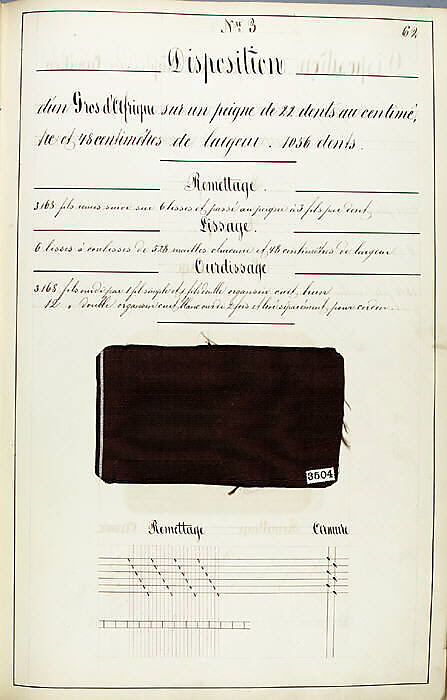 N.º 3
62
Disposition
d'un Gros d'Afrique sur un peigne de 22 dents au centimè,
tre et 48 centimètres de largeur. 1056 dents.
Remettage.
3168 fils remis suivis sur 6 lisses et passé au peigne à 3 fils par dent
Lissage.
6 lisses à coulisses de 528 mailles chacune et 48 centimètres de largeur
Ourdissage
3168 fils ourdis par 1 fil simple et 1 fil double organsin cuit, brun
12 " double organsin cuit, blanc ourdi 2 fois et levé séparément, pour cordon
3504
Remettage
Armure